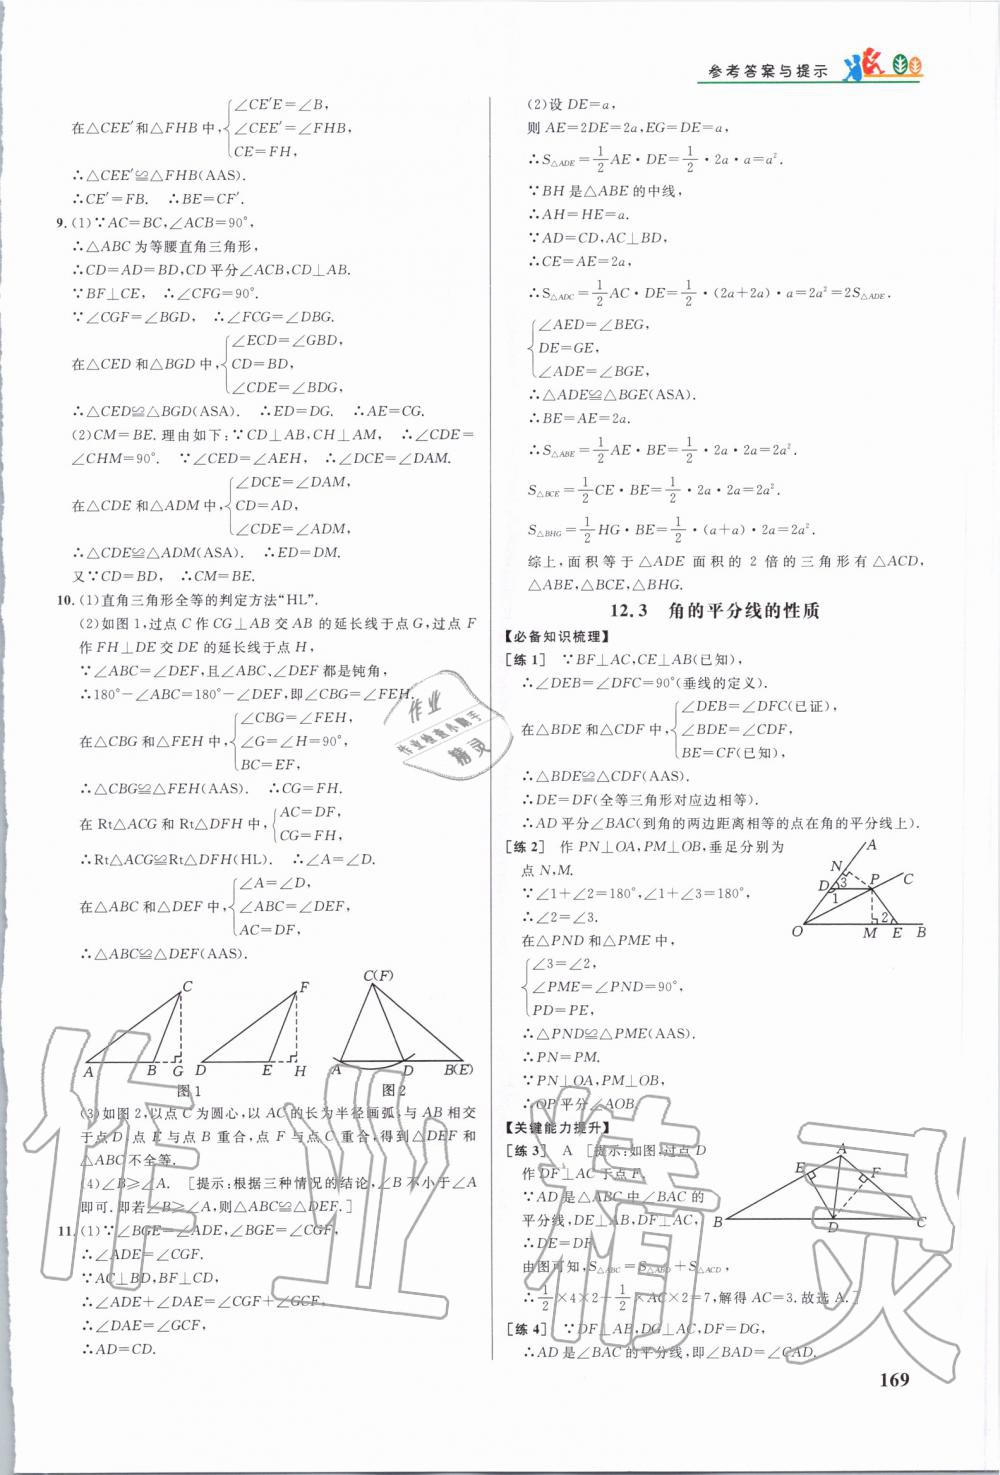 参考答案与提示
在△CEE′和△FHB中,{∠CE′E=∠B,
∠CEE′=∠FHB,
CE=FH,
∴△CEE′≌△FHB(AAS).
∴CE′=FB. ∴BE=CF′.
9.(1)∵AC=BC,∠ACB=90°,
∴△ABC为等腰直角三角形,
∴CD=AD=BD,CD平分∠ACB,CD⊥AB.
∵BF⊥CE, ∴∠CFG=90°.
∵∠CGF=∠BGD, ∴∠FCG=∠DBG.
在△CED和△BGD中,{∠ECD=∠GBD,
CD=BD,
∠CDE=∠BDG,
∴△CED≌△BGD(ASA). ∴ED=DG. ∴AE=CG.
(2)CM=BE.理由如下:∵CD⊥AB,CH⊥AM, ∴∠CDE=
∠CHM=90°. ∵∠CED=∠AEH, ∴∠DCE=∠DAM.
在△CDE和△ADM中,{∠DCE=∠DAM,
CD=AD,
∠CDE=∠ADM,
∴△CDE≌△ADM(ASA). ∴ED=DM.
又∵CD=BD, ∴CM=BE.
10.(1)直角三角形全等的判定方法“HL”.
(2)如图1,过点C作CG⊥AB交AB的延长线于点G,过点F
作FH⊥DE交DE的延长线于点H,
∵∠ABC=∠DEF,且∠ABC、∠DEF都是钝角,
∴180°-∠ABC=180°-∠DEF,即∠CBG=∠FEH.
在△CBG和△FEH中,{∠CBG=∠FEH,
∠G=∠H=90°,
BC=EF,
∴△CBG≌△FEH(AAS). ∴CG=FH.
在Rt△ACG和Rt△DFH中,{AC=DF,
CG=FH,
∴Rt△ACG≌Rt△DFH(HL). ∴∠A=∠D.
在△ABC和△DEF中,{∠A=∠D,
∠ABC=∠DEF,
AC=DF,
∴△ABC≌△DEF(AAS).
C F C(F)
A B G D E H A D B(E)
图1 图2
(3)如图2,以点C为圆心,以AC的长为半径画弧,与AB相交
于点D,点E与点B重合,点F与点C重合,得到△DEF和
△ABC不全等.
(4)∠B≥∠A. [提示:根据三种情况的结论,∠B不小于∠A
即可.即若∠B≥∠A,则△ABC≌△DEF.]
11.(1)∵∠BGE=∠ADE,∠BGE=∠CGF,
∴∠ADE=∠CGF.
∵AC⊥BD,BF⊥CD,
∴∠ADE+∠DAE=∠CGF+∠GCF,
∴∠DAE=∠GCF,
∴AD=CD.
(2)设DE=a,
则AE=2DE=2a,EG=DE=a,
∴S△ADE=1/2AE·DE=1/2·2a·a=a².
∵BH是△ABE的中线,
∴AH=HE=a.
∵AD=CD,AC⊥BD,
∴CE=AE=2a,
∴S△ADC=1/2AC·DE=1/2·(2a+2a)·a=2a²=2S△ADE.
{∠AED=∠BEG,
DE=GE,
∠ADE=∠BGE,
∴△ADE≌△BGE(ASA).
∴BE=AE=2a.
∴S△ABE=1/2AE·BE=1/2·2a·2a=2a².
S△BCE=1/2CE·BE=1/2·2a·2a=2a².
S△BHG=1/2HG·BE=1/2·(a+a)·2a=2a².
综上,面积等于△ADE面积的2倍的三角形有△ACD,
△ABE,△BCE,△BHG.
12.3 角的平分线的性质
【必备知识梳理】
[练1] ∵BF⊥AC,CE⊥AB(已知),
∴∠DEB=∠DFC=90°(垂线的定义).
在△BDE和△CDF中,{∠DEB=∠DFC(已证),
∠BDE=∠CDF,
BE=CF(已知),
∴△BDE≌△CDF(AAS).
∴DE=DF(全等三角形对应边相等).
∴AD平分∠BAC(到角的两边距离相等的点在角的平分线上).
[练2] 作PN⊥OA,PM⊥OB,垂足分别为
点N,M.
∵∠1+∠2=180°,∠1+∠3=180°,
∴∠2=∠3.
在△PND和△PME中,
{∠3=∠2,
∠PME=∠PND=90°,
PD=PE,
∴△PND≌△PME(AAS).
∴PN=PM.
∵PN⊥OA,PM⊥OB,
∴OP平分∠AOB.
A
N
D 3 P C
1
2
O M E B
【关键能力提升】
[练3] A [提示:如图,过点D
作DF⊥AC于点F.
∵AD是△ABC中∠BAC的
平分线,DE⊥AB,DF⊥AC,
∴DE=DF.
由图可知,S△ABC=S△ABD+S△ACD,
∴1/2×4×2+1/2×AC×2=7,解得AC=3.故选A.]
A
E F
B D C
[练4] ∵DF⊥AB,DG⊥AC,DF=DG,
∴AD是∠BAC的平分线,即∠BAD=∠CAD.
169
作业
作业检查小助手
精灵
作业精灵